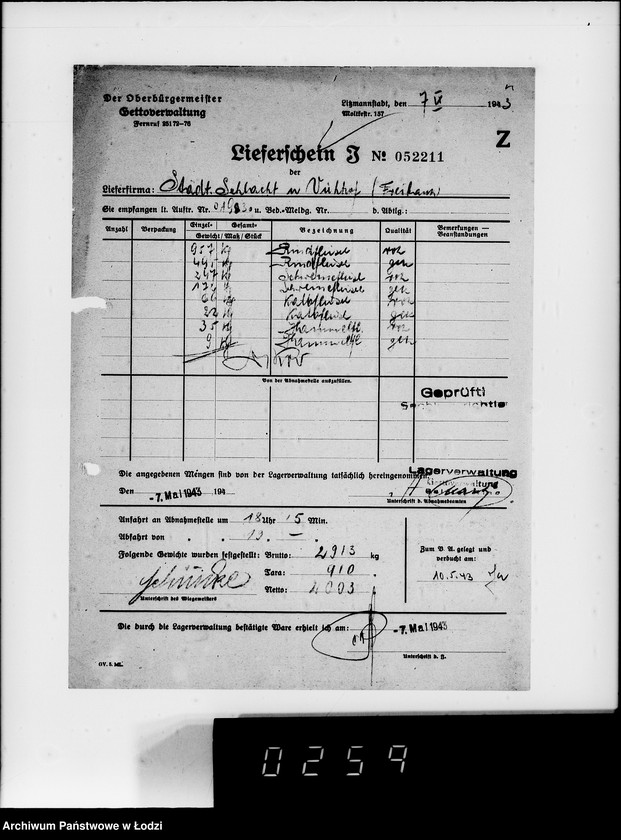 Der Oberbürgermeister
Gettoverwaltung
Fernruf 25172-76
Litzmannstadt, den 7 1943
Moltkestr. 157
Z
Lieferschein J № 052211
der
Lieferfirma: Städt. Schlacht u Viehhof (Freibank)
Sie empfangen lt. Auftr. Nr. u. Bed.-Meldg. Nr. b. Abtlg.:
Anzahl Verpackung Einzel- Gesamt- Gewicht/Maß/Stück Bezeichnung Qualität Bemerkungen — Beanstandungen
957 kg Rindfleisch roh
495 kg Rindfleisch gek
247 kg Schweinefleisch roh
kg Schweinefleisch gek
kg Kalbfleisch roh
22 kg Kalbfleisch gek
35 kg roh
9 kg gek
Von der Abnahmestelle auszufüllen.
Geprüft!
Die angegebenen Mengen sind von der Lagerverwaltung tatsächlich hereingenommen.
Lagerverwaltung
Gettoverwaltung
Den -7. Mai 1943 194
Unterschrift d. Abnahmebeamten
Anfahrt an Abnahmestelle um 18 Uhr 15 Min.
Abfahrt von " " 19 " — "
Folgende Gewichte wurden festgestellt: Brutto: 2913 kg
Tara: 910 "
Netto: 2003 "
Unterschrift des Wiegemeisters
Zum B. A. gelegt und
verbucht am:
10.5.43
Die durch die Lagerverwaltung bestätigte Ware erhielt ich am: -7. Mai 1943
GV. 5. Mk.
0259
Archiwum Państwowe w Łodzi